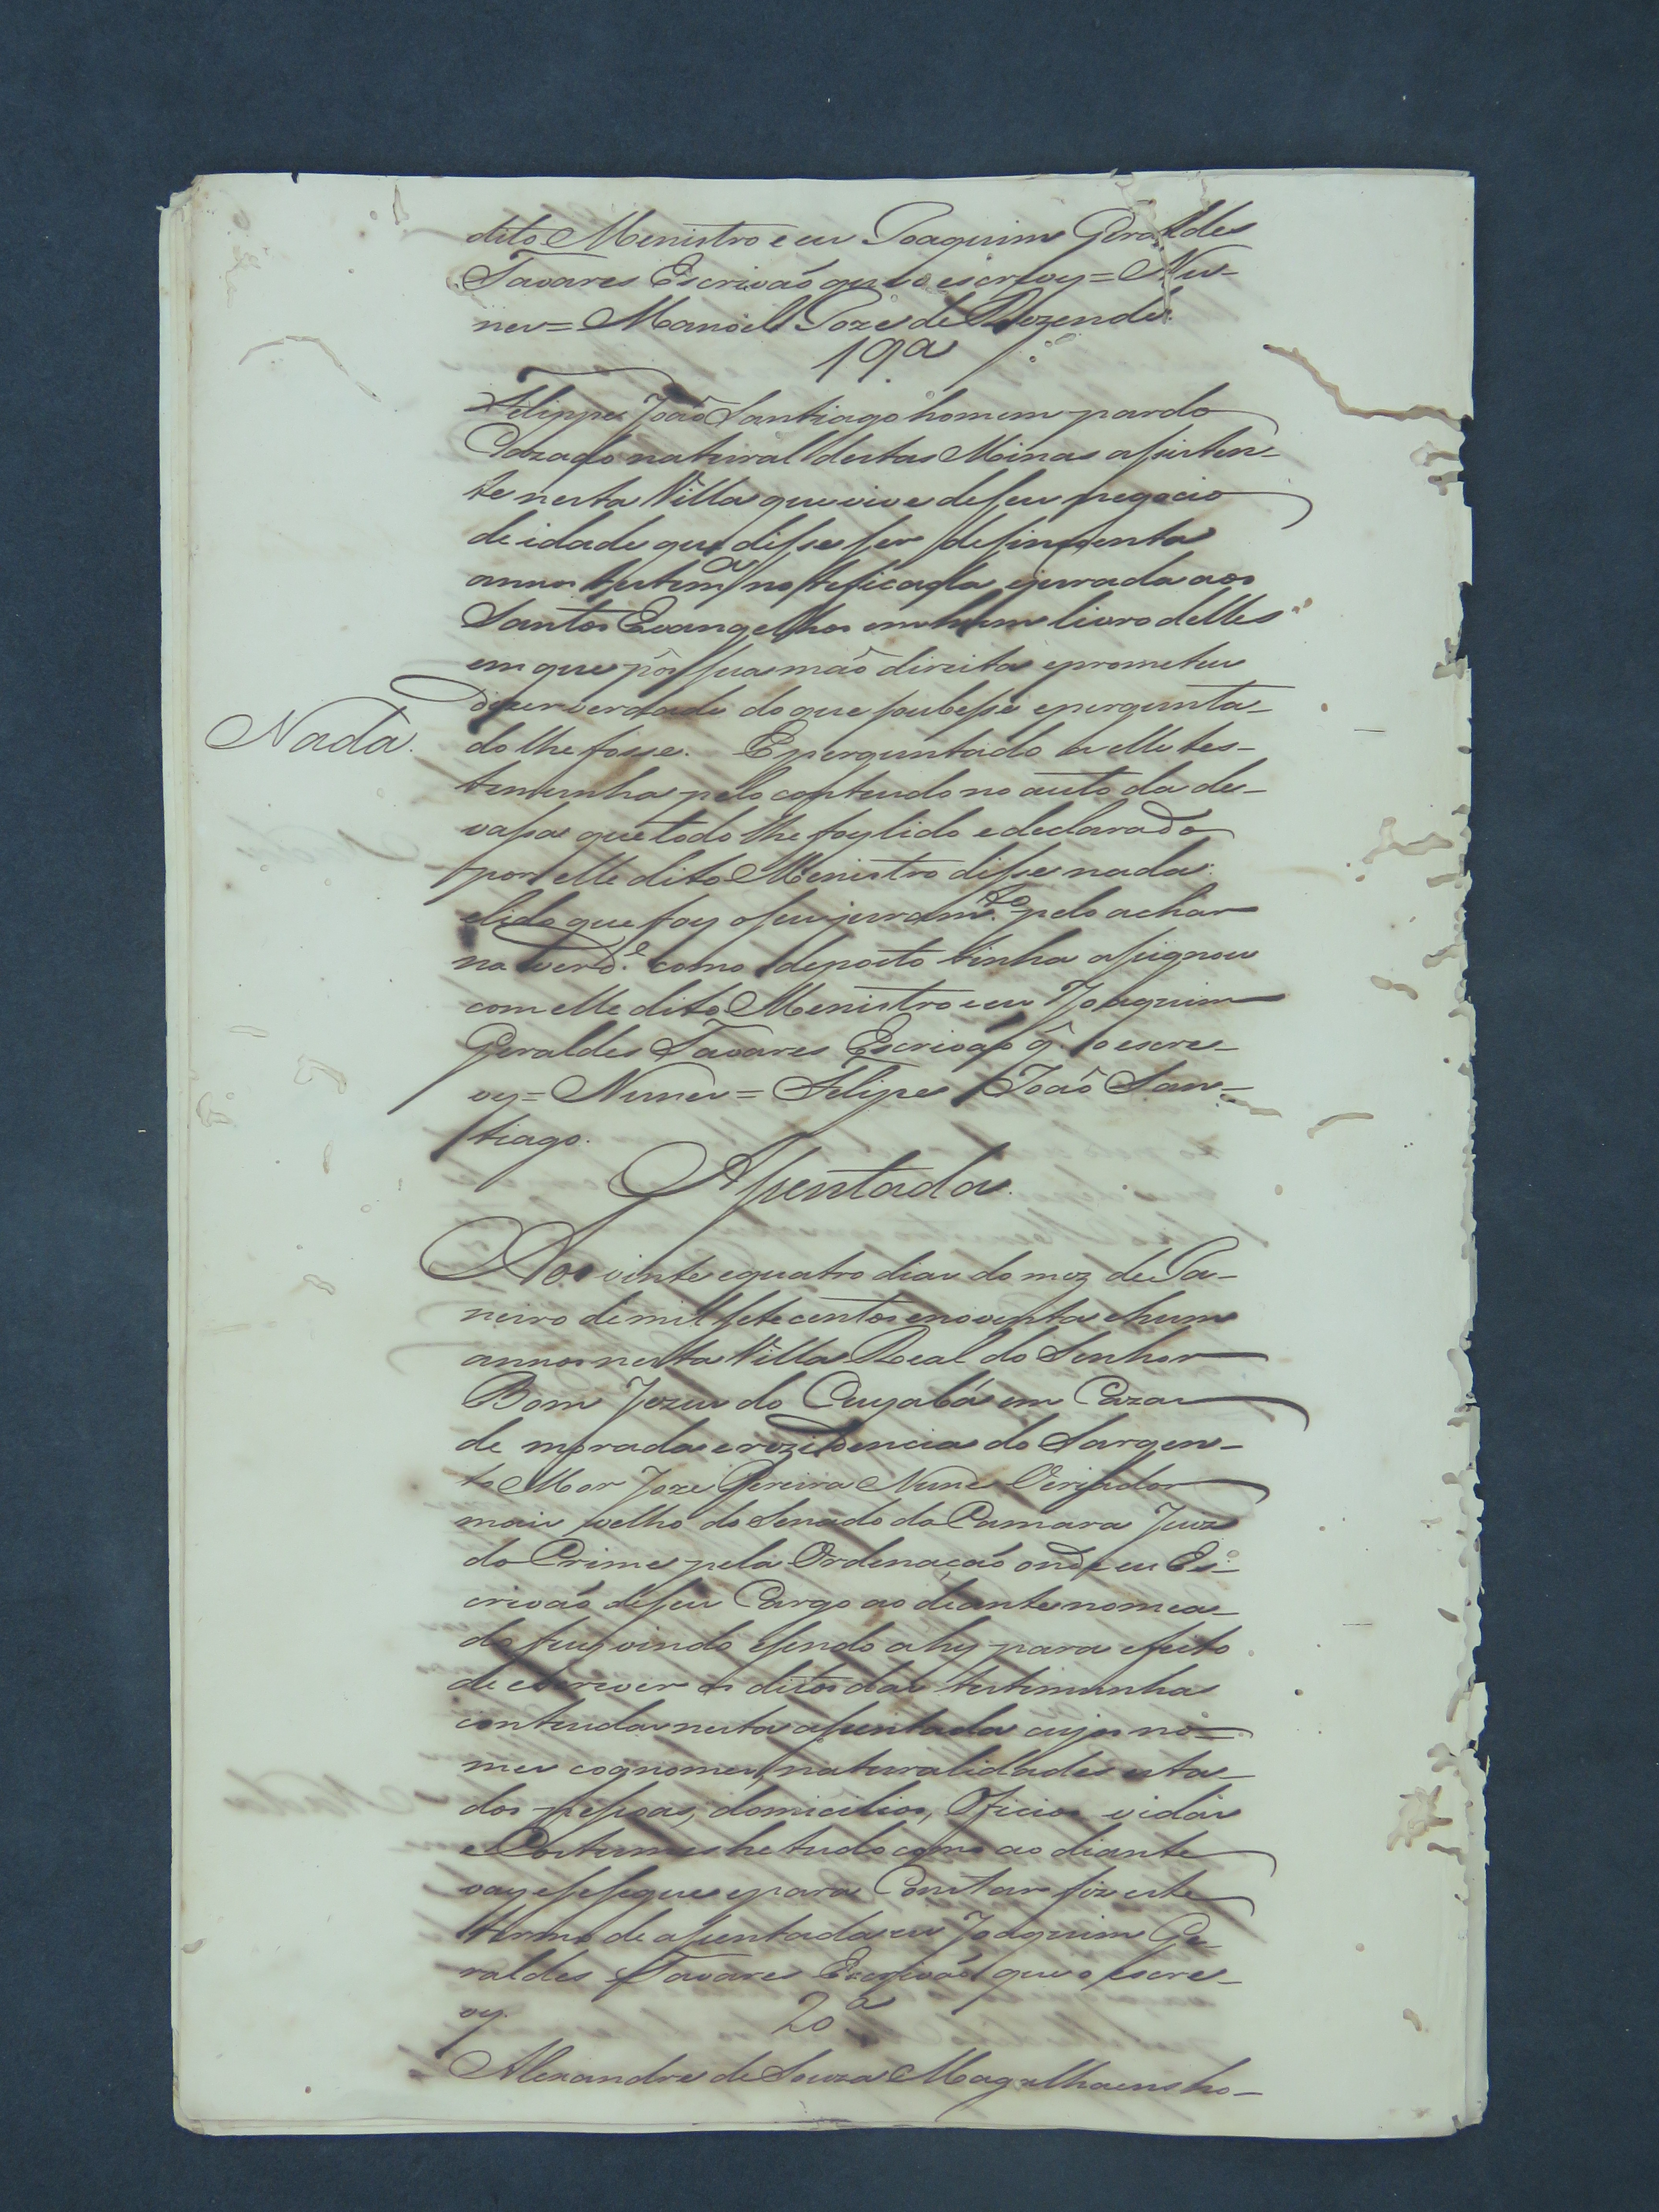 dito Menistro e eu Joaquim Geraldes
Tavares Escrivaõ que o escrevy = Nu-
nes = Manoel Joze de Rezende.
19a
Felippe Joaõ Santiago homem pardo
Cazado natural destas Minas assisten-
te nesta Villa que vive de seu negocio
de idade que disse ser de sincoenta
annos testema notificada ejurada aos
Santos Evangelhos em hum livro delles
em que pôs sua maõ direita eprometeu
dizer verdade do que soubesse epergunta-
Nada.
do lhe fosse. E perguntado a elle tes-
temunha pelo contendo no auto da de-
vassa que todo lhe foy lido e declarado
por elle dito Menistro disse nada.
elido que foy oseu juram.to pelo achar
na verd.e como deposto tinha assignou
com elle dito Menistro e eu Joaquim
Geraldes Tavares Escrivaõ q̂ o escre-
vy = Nunes = Felipe Joaõ San-
tiago.
Assentada.
Aos vinte equatro dias do mez de Ja-
neiro de mil sete centos enoventa ehum
annos nesta Villa Real do Senhor
Bom Jezus do Cuyabá em Cazas
de morada erezidencia do Sargen-
to Mor Joze Pereira Nunes Veriador
mais velho do Senado da Camara Juiz
do Crime pela Ordenaçaõ onde eu Es-
crivaõ deseu Cargo ao deante nomea-
do fuy vindo esendo ahy para efeito
de escrever os ditos das testimunhas
contendas nesta assentada cujos no-
mes cognomes, naturalidades esta-
dos pessoas, domicilios, Oficios vidas
e Costumes he tudo como ao diante
vay esesegue epara Constar fiz este
termo de assentada eu Joaquim Ge-
raldes Tavares Escrivaõ que o escre-
vy.
20a
Alexandre de Souza Magalhaens ho-